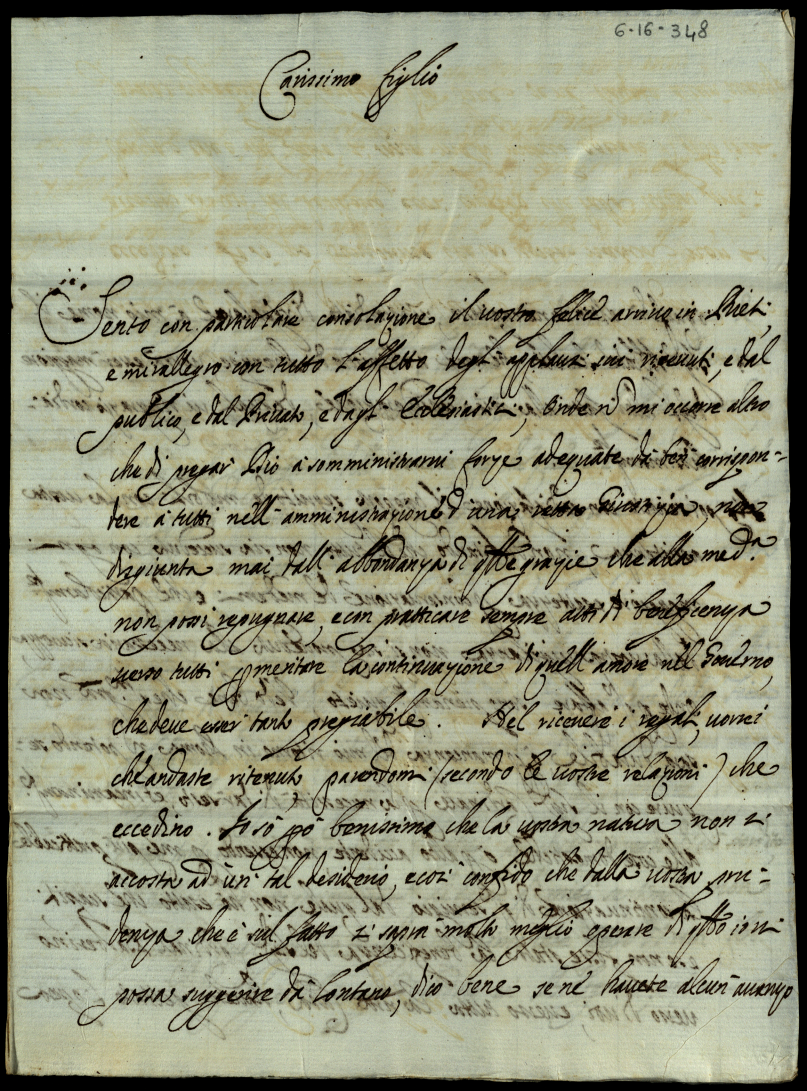 6-16-348
Carissimo figlio
Sento con particolare consolazione il vostro felice arrivo in Rieti,
e mi rallegro con tutto l'affetto degl'applausi ivi ricevuti, e dal
publico, e dal Privato, e dagl'Ecclesiastici, Onde nō mi occorre altro
che di pregar Dio à somministrarvi forze adequate dà ben corrispon=
dere à tutti nell'amministrazione d'una retta Giustizia, non
disgiunta mai dall'abbondanza di qlle grazie che alla med.a
non possi repugnare, e con pratticare sempre atti di beneficenza
verso tutti meritare la continuazione di quell'amore nel Governo,
che deve esser tanto prezzabile. Nel ricevere i regali, vorrei
ch'andaste ritenuto, parendomi (secondo le vostre relazioni) che
eccedino. Io sò pò benissimo che la vostra natura non si
accosta ad un tal desiderio, e così confido che dalla vostra pru=
denza che è sul fatto si saprà molto meglio operare di qllo io vi
possa suggerire dà lontano, dico bene se nè havete alcun avanzo